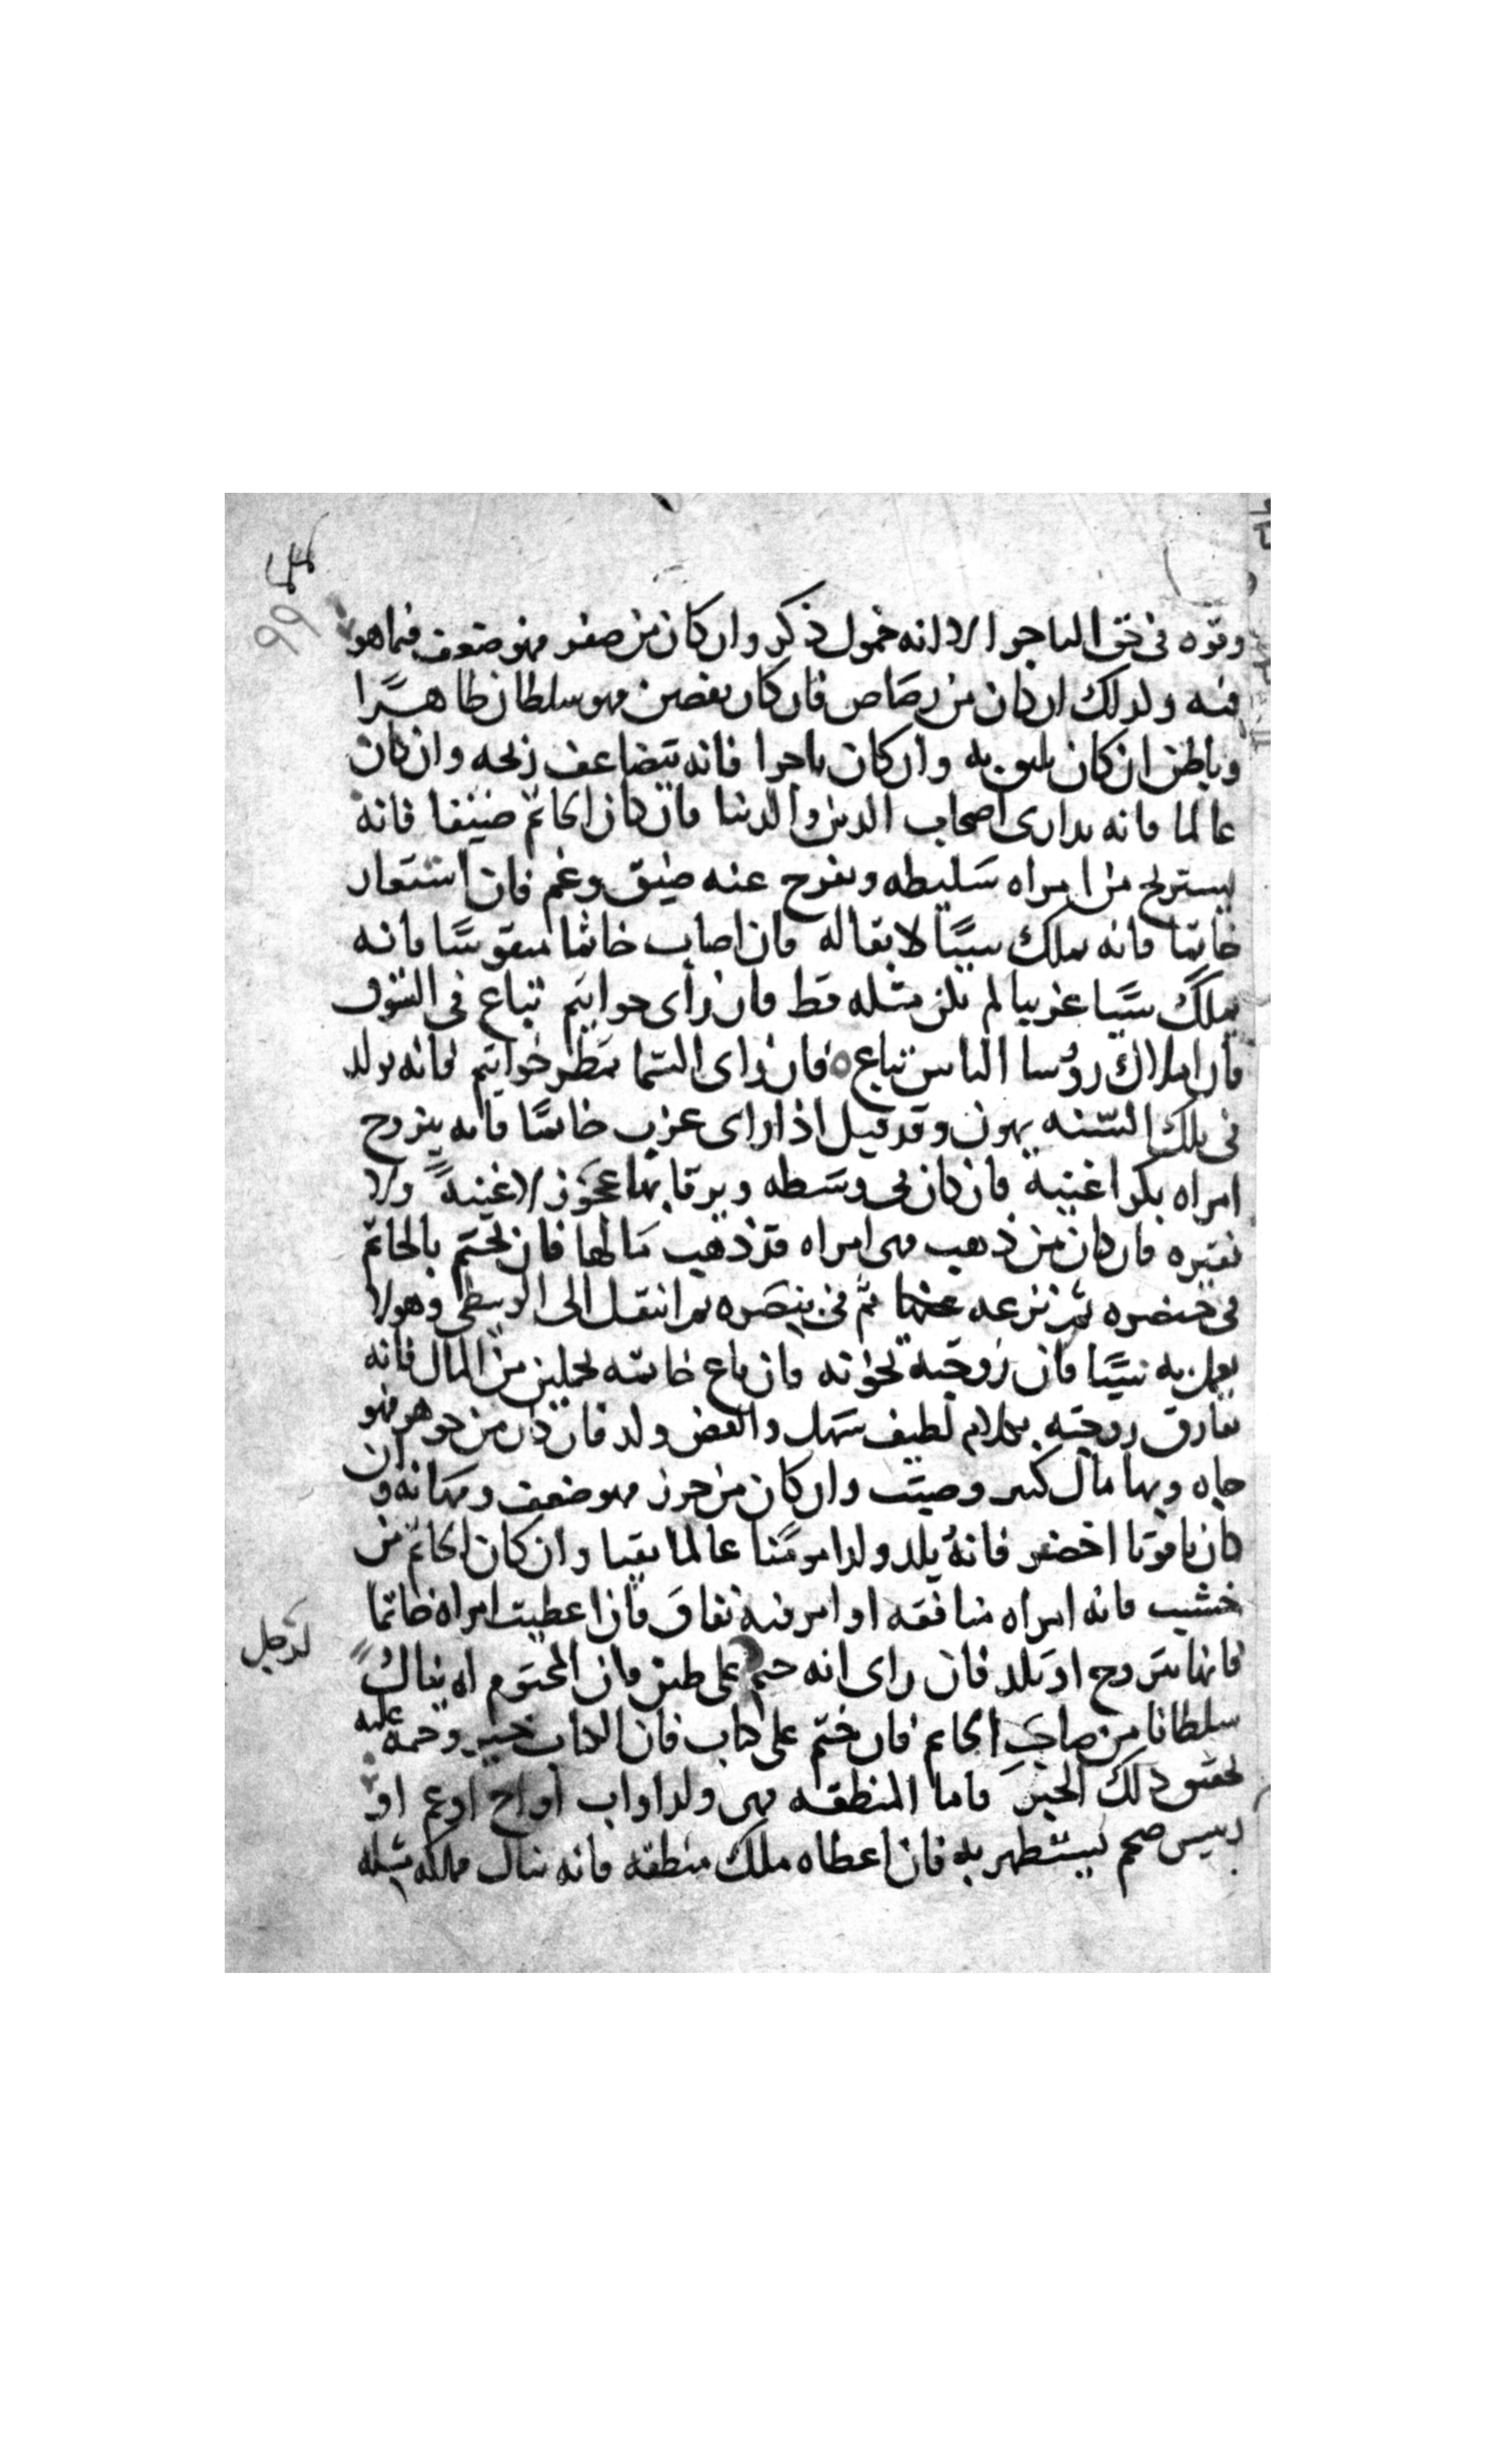 وقوه في حق التاجر الا انه خمول ذكر وان كان من صفر فهو ضعف فيما هو
فيه وكذلك ان كان من رصاص فان كان بفصين فهو سلطان ظاهرا
وباطن ان كان يليق به وان كان تاجرا فانه يتضاعف ربحه وان كان
عالما فانه يدارى اصحاب الدين والدنيا فان كان الخاتم ضيقا فانه
يستريح من امراه سليطه ويفرج عنه ضيق وغم فان استعار
خاتما فانه يملك شيئا لا بقا له فان اصاب خاتما منقوشا فانه
يملك شيئا غريبا لم يكن مثله قط فان رأى خواتيم تباع في السوق
فان املاك رؤسا الناس تباع فان رأى السما تمطر خواتيم فانه يولد
في تلك السنه بنون وقد قيل اذا راى عزب خاتما فانه يتزوج
امراه بكرا غنيه فان كان في وسطه عجوز لا غنية ولا
فقيره فان كان من ذهب فهي امراه قد ذهب مالها فان تختم بالخاتم
في خنصره ثم نزعه عنها ثم في بنصره ثم انتقل الى الوسطى وهو لا
يعمل به شيئا فان زوجته تخونه فان باع خاتمه من المال فانه
يفارق زوجته بكلام لطيف سهل والفص ولد فان كان من جوهر فهو
جاه وبها مال كثير وصيت وان كان من خرز فهو ضعف ومهانه وان
كان ياقوتا اخضر فانه يلد ولدا مومنا عالما تقيا وان كان الخاتم من
خشب فانه امراه منافقه او امر فيه نفاق فان اعطيت امراه خاتما
فانها تتزوج او تلد فان راى انه ختم على طين فان المختوم له ينال
لرجل
سلطانا من صاحب الخاتم فان ختم على كتاب فان الكتاب خبر وختمه عليه
تحقيق ذلك الخبر فاما المنطقه فهي ولد او اب او اخ او عم او
رييس ضخم يستظهر به فان اعطاه ملك منطقه فانه ينال مملكه مثله
99